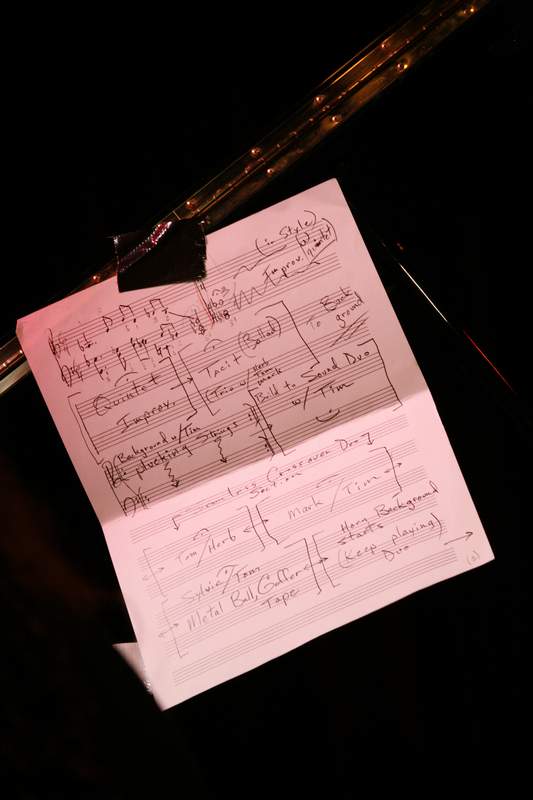 (in Style)
Improv. Quartet
Quintet
Improv.
Tacit (Ballad)
(Trio w/ Herb
Tom
Mark
To Back
ground
Background w/ Tim
plucking Strings
Build to Sound Duo
w/ Tim
Seamless Crossover Duo
Section
Tom/Herb
Mark/Tim
Sylvie/Tom
Metal Ball, Gaffer
Tape
Horn Background
starts
(Keep playing)
Duo